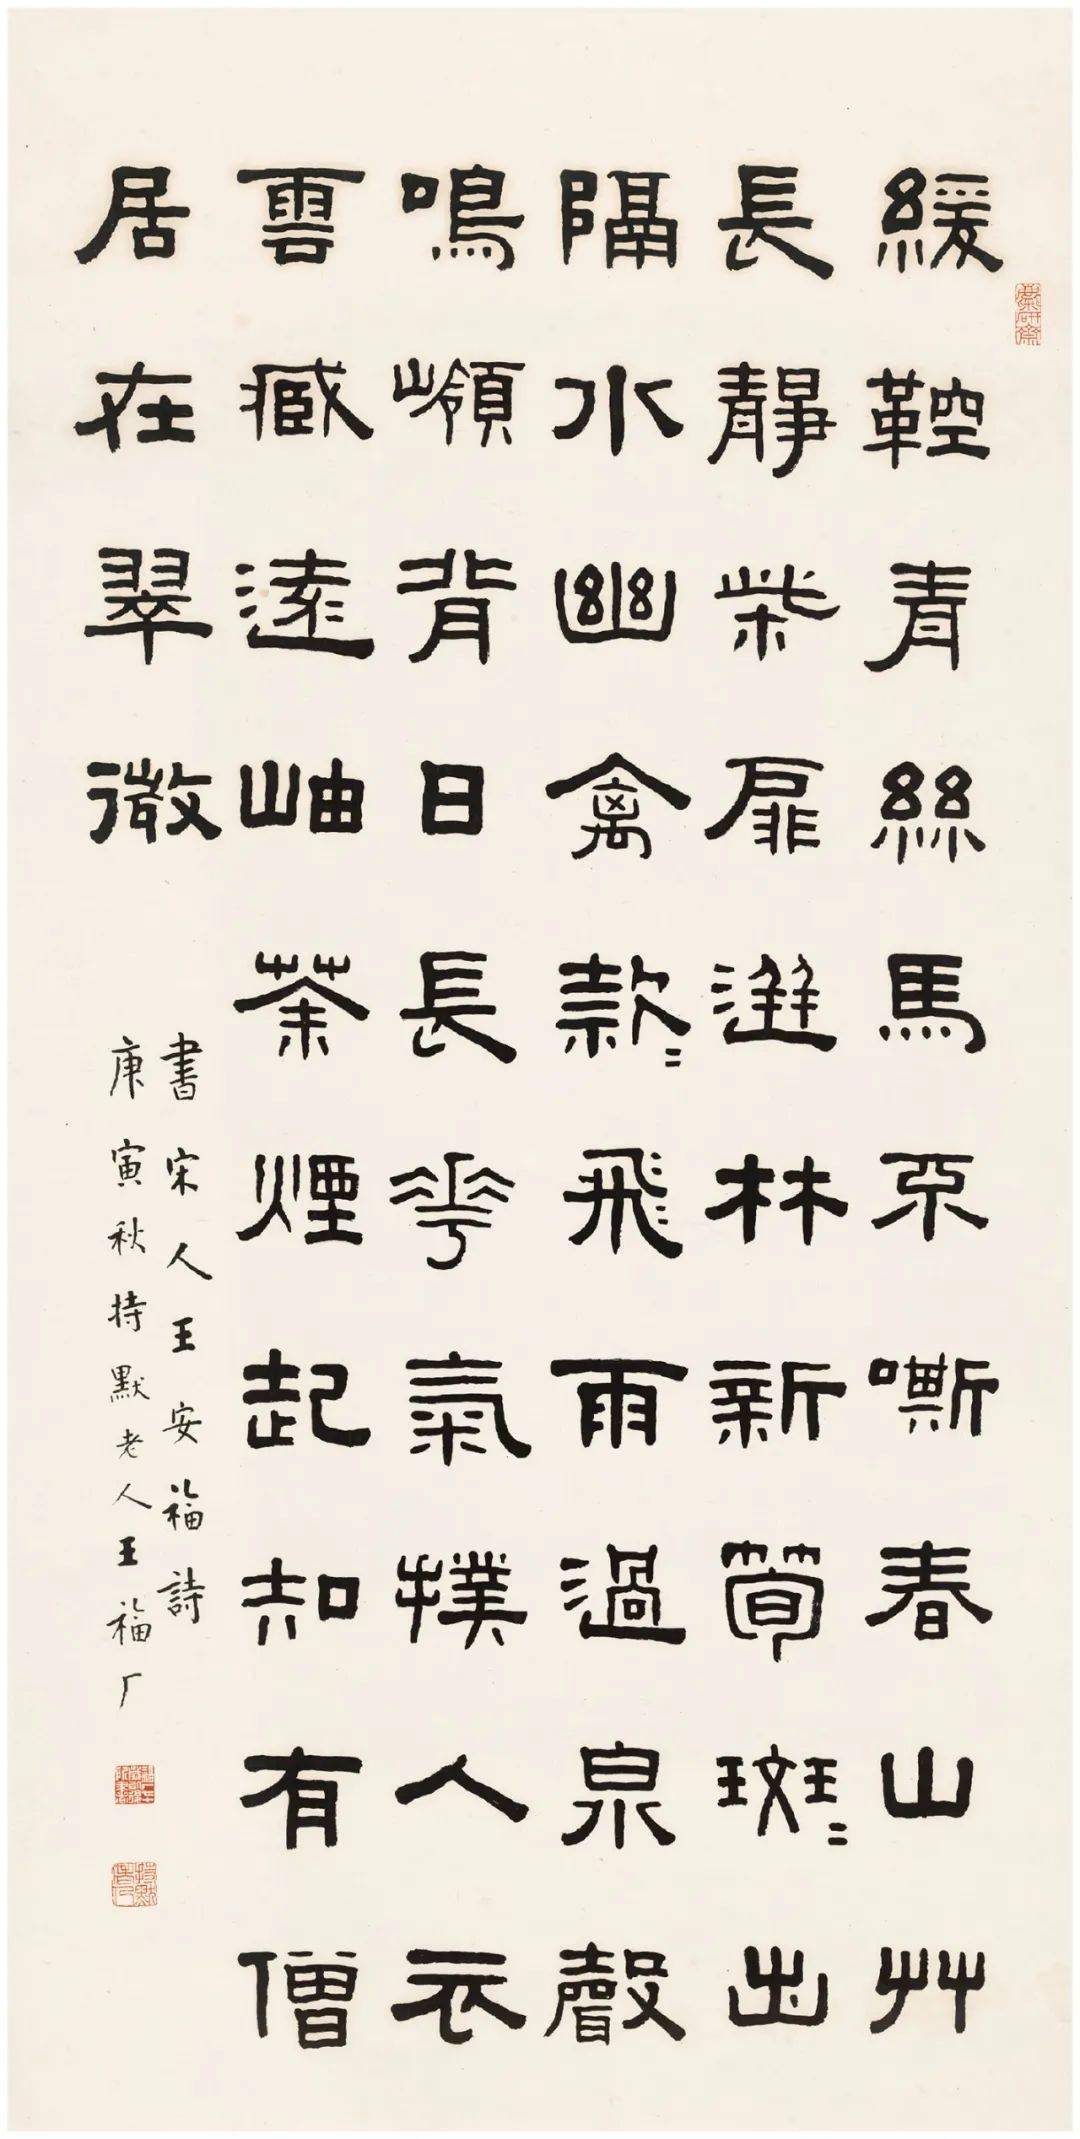 緩鞚青絲馬不嘶春山艸
長靜柴扉逬林新筍斑〻出
隔水幽禽款〻飛雨過泉聲
鳴嶺背日長華氣撲人衣
雲臧遠岫茶煙起知有僧
居在翠微
書宋人王安福詩
庚寅秋持默老人王福厂
麋研齋